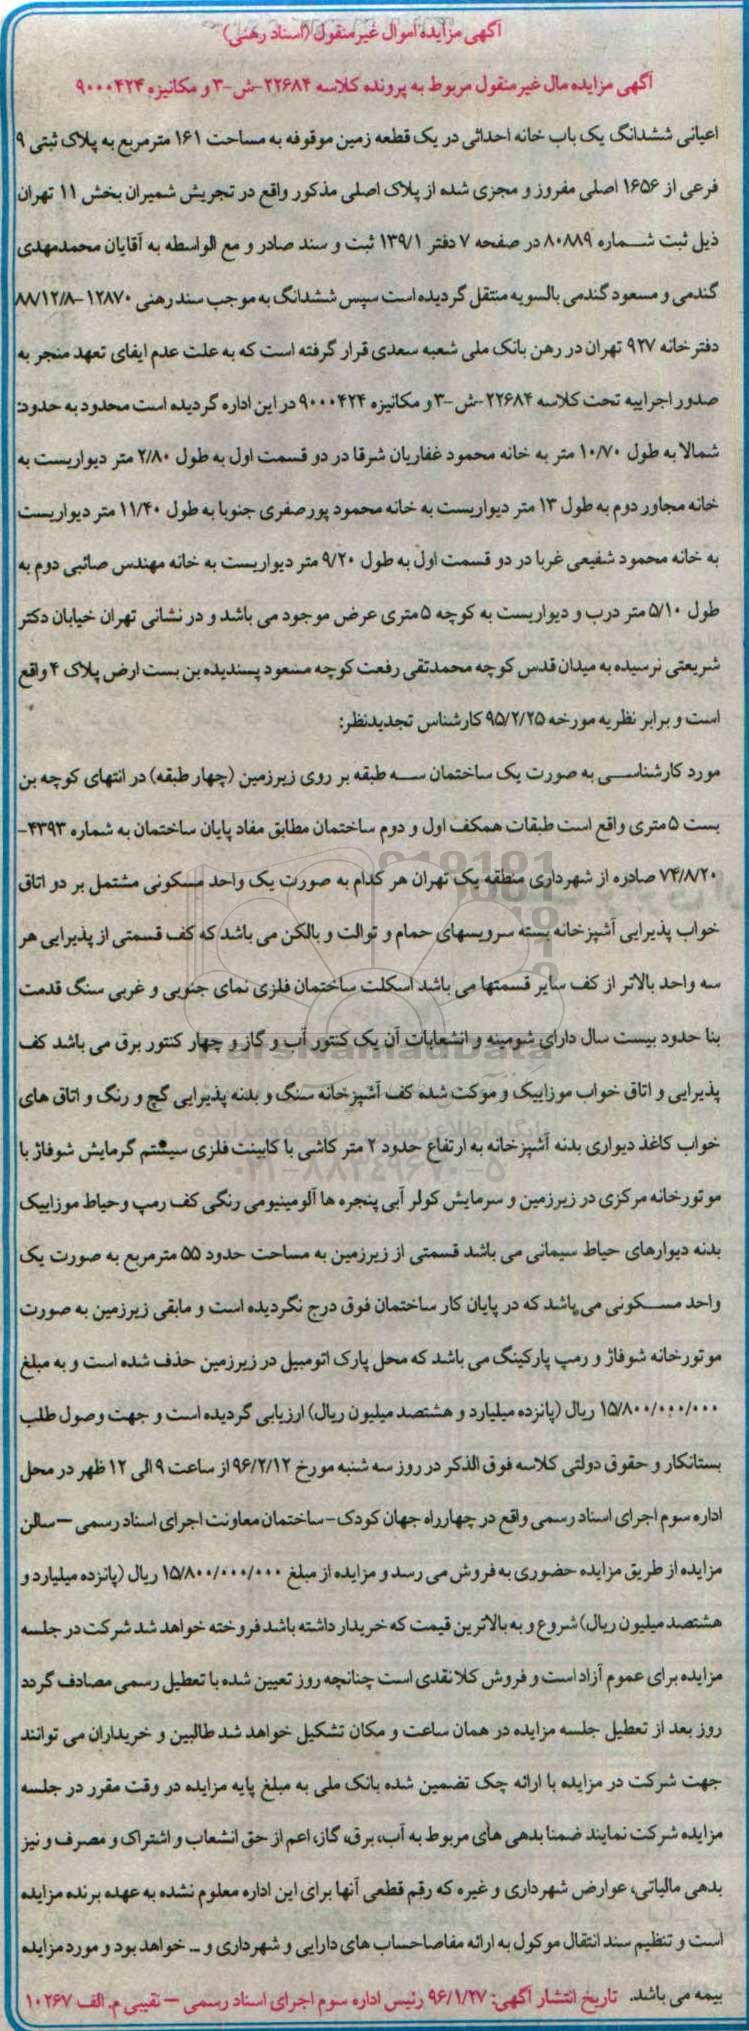 آگهی مزایده اموال غیرمنقول (اسناد رهنی)
آگهی مزایده مال غیرمنقول مربوط به پرونده کلاسه ۲۲۶۸۴-ش-۳ و مکانیزه ۹۰۰۰۴۲۴
اعیانی ششدانگ یک باب خانه احداثی در یک قطعه زمین موقوفه به مساحت ۱۶۱ مترمربع به پلاک ثبتی ۹
فرعی از ۱۶۵۶ اصلی مفروز و مجزی شده از پلاک اصلی مذکور واقع در تجریش شمیران بخش ۱۱ تهران
ذیل ثبت شماره ۸۰۸۸۹ در صفحه ۷ دفتر ۱۳۹/۱ ثبت و سند صادر و مع الواسطه به آقایان محمدمهدی
گندمی و مسعود گندمی بالسویه منتقل گردیده است سپس ششدانگ به موجب سند رهنی ۱۲۸۷۰-۸۸/۱۲/۸
دفترخانه ۹۲۷ تهران در رهن بانک ملی شعبه سعدی قرار گرفته است که به علت عدم ایفای تعهد منجر به
صدور اجراییه تحت کلاسه ۲۲۶۸۴-ش-۳ و مکانیزه ۹۰۰۰۴۲۴ در این اداره گردیده است محدود به حدود:
شمالا به طول ۱۰/۷۰ متر به خانه محمود غفاریان شرقا در دو قسمت اول به طول ۲/۸۰ متر دیواریست به
خانه مجاور دوم به طول ۱۳ متر دیواریست به خانه محمود پورصفری جنوبا به طول ۱۱/۴۰ متر دیواریست
به خانه محمود شفیعی غربا در دو قسمت اول به طول ۹/۲۰ متر دیواریست به خانه مهندس صائبی دوم به
طول ۵/۱۰ متر درب و دیواریست به کوچه ۵ متری عرض موجود می باشد و در نشانی تهران خیابان دکتر
شریعتی نرسیده به میدان قدس کوچه محمدتقی رفعت کوچه مسعود پسندیده بن بست ارض پلاک ۴ واقع
است و برابر نظریه مورخه ۹۵/۲/۲۵ کارشناس تجدیدنظر:
مورد کارشناسی به صورت یک ساختمان سه طبقه بر روی زیرزمین (چهار طبقه) در انتهای کوچه بن
بست ۵ متری واقع است طبقات همکف اول و دوم ساختمان مطابق مفاد پایان ساختمان به شماره ۴۳۹۳-
۷۴/۸/۲۰ صادره از شهرداری منطقه یک تهران هر کدام به صورت یک واحد مسکونی مشتمل بر دو اتاق
خواب پذیرایی آشپزخانه بسته سرویسهای حمام و توالت و بالکن می باشد که کف قسمتی از پذیرایی هر
سه واحد بالاتر از کف سایر قسمتها می باشد اسکلت ساختمان فلزی نمای جنوبی و غربی سنگ قدمت
بنا حدود بیست سال دارای شومینه و انشعابات آن یک کنتور آب و گاز و چهار کنتور برق می باشد کف
پذیرایی و اتاق خواب موزاییک و موکت شده کف آشپزخانه سنگ و بدنه پذیرایی گچ و رنگ و اتاق های
خواب کاغذ دیواری بدنه آشپزخانه به ارتفاع حدود ۲ متر کاشی با کابینت فلزی سیستم گرمایش شوفاژ با
موتورخانه مرکزی در زیرزمین و سرمایش کولر آبی پنجره ها آلومینیومی رنگی کف رمپ و حیاط موزاییک
بدنه دیوارهای حیاط سیمانی می باشد قسمتی از زیرزمین به مساحت حدود ۵۵ مترمربع به صورت یک
واحد مسکونی می باشد که در پایان کار ساختمان فوق درج نگردیده است و مابقی زیرزمین به صورت
موتورخانه شوفاژ و رمپ پارکینگ می باشد که محل پارک اتومبیل در زیرزمین حذف شده است و به مبلغ
۱۵/۸۰۰/۰۰۰/۰۰۰ ریال (پانزده میلیارد و هشتصد میلیون ریال) ارزیابی گردیده است و جهت وصول طلب
بستانکار و حقوق دولتی کلاسه فوق الذکر در روز سه شنبه مورخ ۹۶/۲/۱۲ از ساعت ۹ الی ۱۲ ظهر در محل
اداره سوم اجرای اسناد رسمی واقع در چهارراه جهان کودک-ساختمان معاونت اجرای اسناد رسمی – سالن
مزایده از طریق مزایده حضوری به فروش می رسد و مزایده از مبلغ ۱۵/۸۰۰/۰۰۰/۰۰۰ ریال (پانزده میلیارد و
هشتصد میلیون ریال) شروع و به بالاترین قیمت که خریدار داشته باشد فروخته خواهد شد شرکت در جلسه
مزایده برای عموم آزاد است و فروش کلا نقدی است چنانچه روز تعیین شده با تعطیل رسمی مصادف گردد
روز بعد از تعطیل جلسه مزایده در همان ساعت و مکان تشکیل خواهد شد طالبین و خریداران می توانند
جهت شرکت در مزایده با ارائه چک تضمین شده بانک ملی به مبلغ پایه مزایده در وقت مقرر در جلسه
مزایده شرکت نمایند ضمنا بدهی های مربوط به آب، برق، گاز، اعم از حق انشعاب و اشتراک و مصرف و نیز
بدهی مالیاتی، عوارض شهرداری و غیره که رقم قطعی آنها برای این اداره معلوم نشده به عهده برنده مزایده
است و تنظیم سند انتقال موکول به ارائه مفاصاحساب های دارایی و شهرداری و ... خواهد بود و مورد مزایده
بیمه می باشد. تاریخ انتشار آگهی: ۹۶/۱/۲۷ رئیس اداره سوم اجرای اسناد رسمی – نقیبی م. الف ۱۰۲۶۷